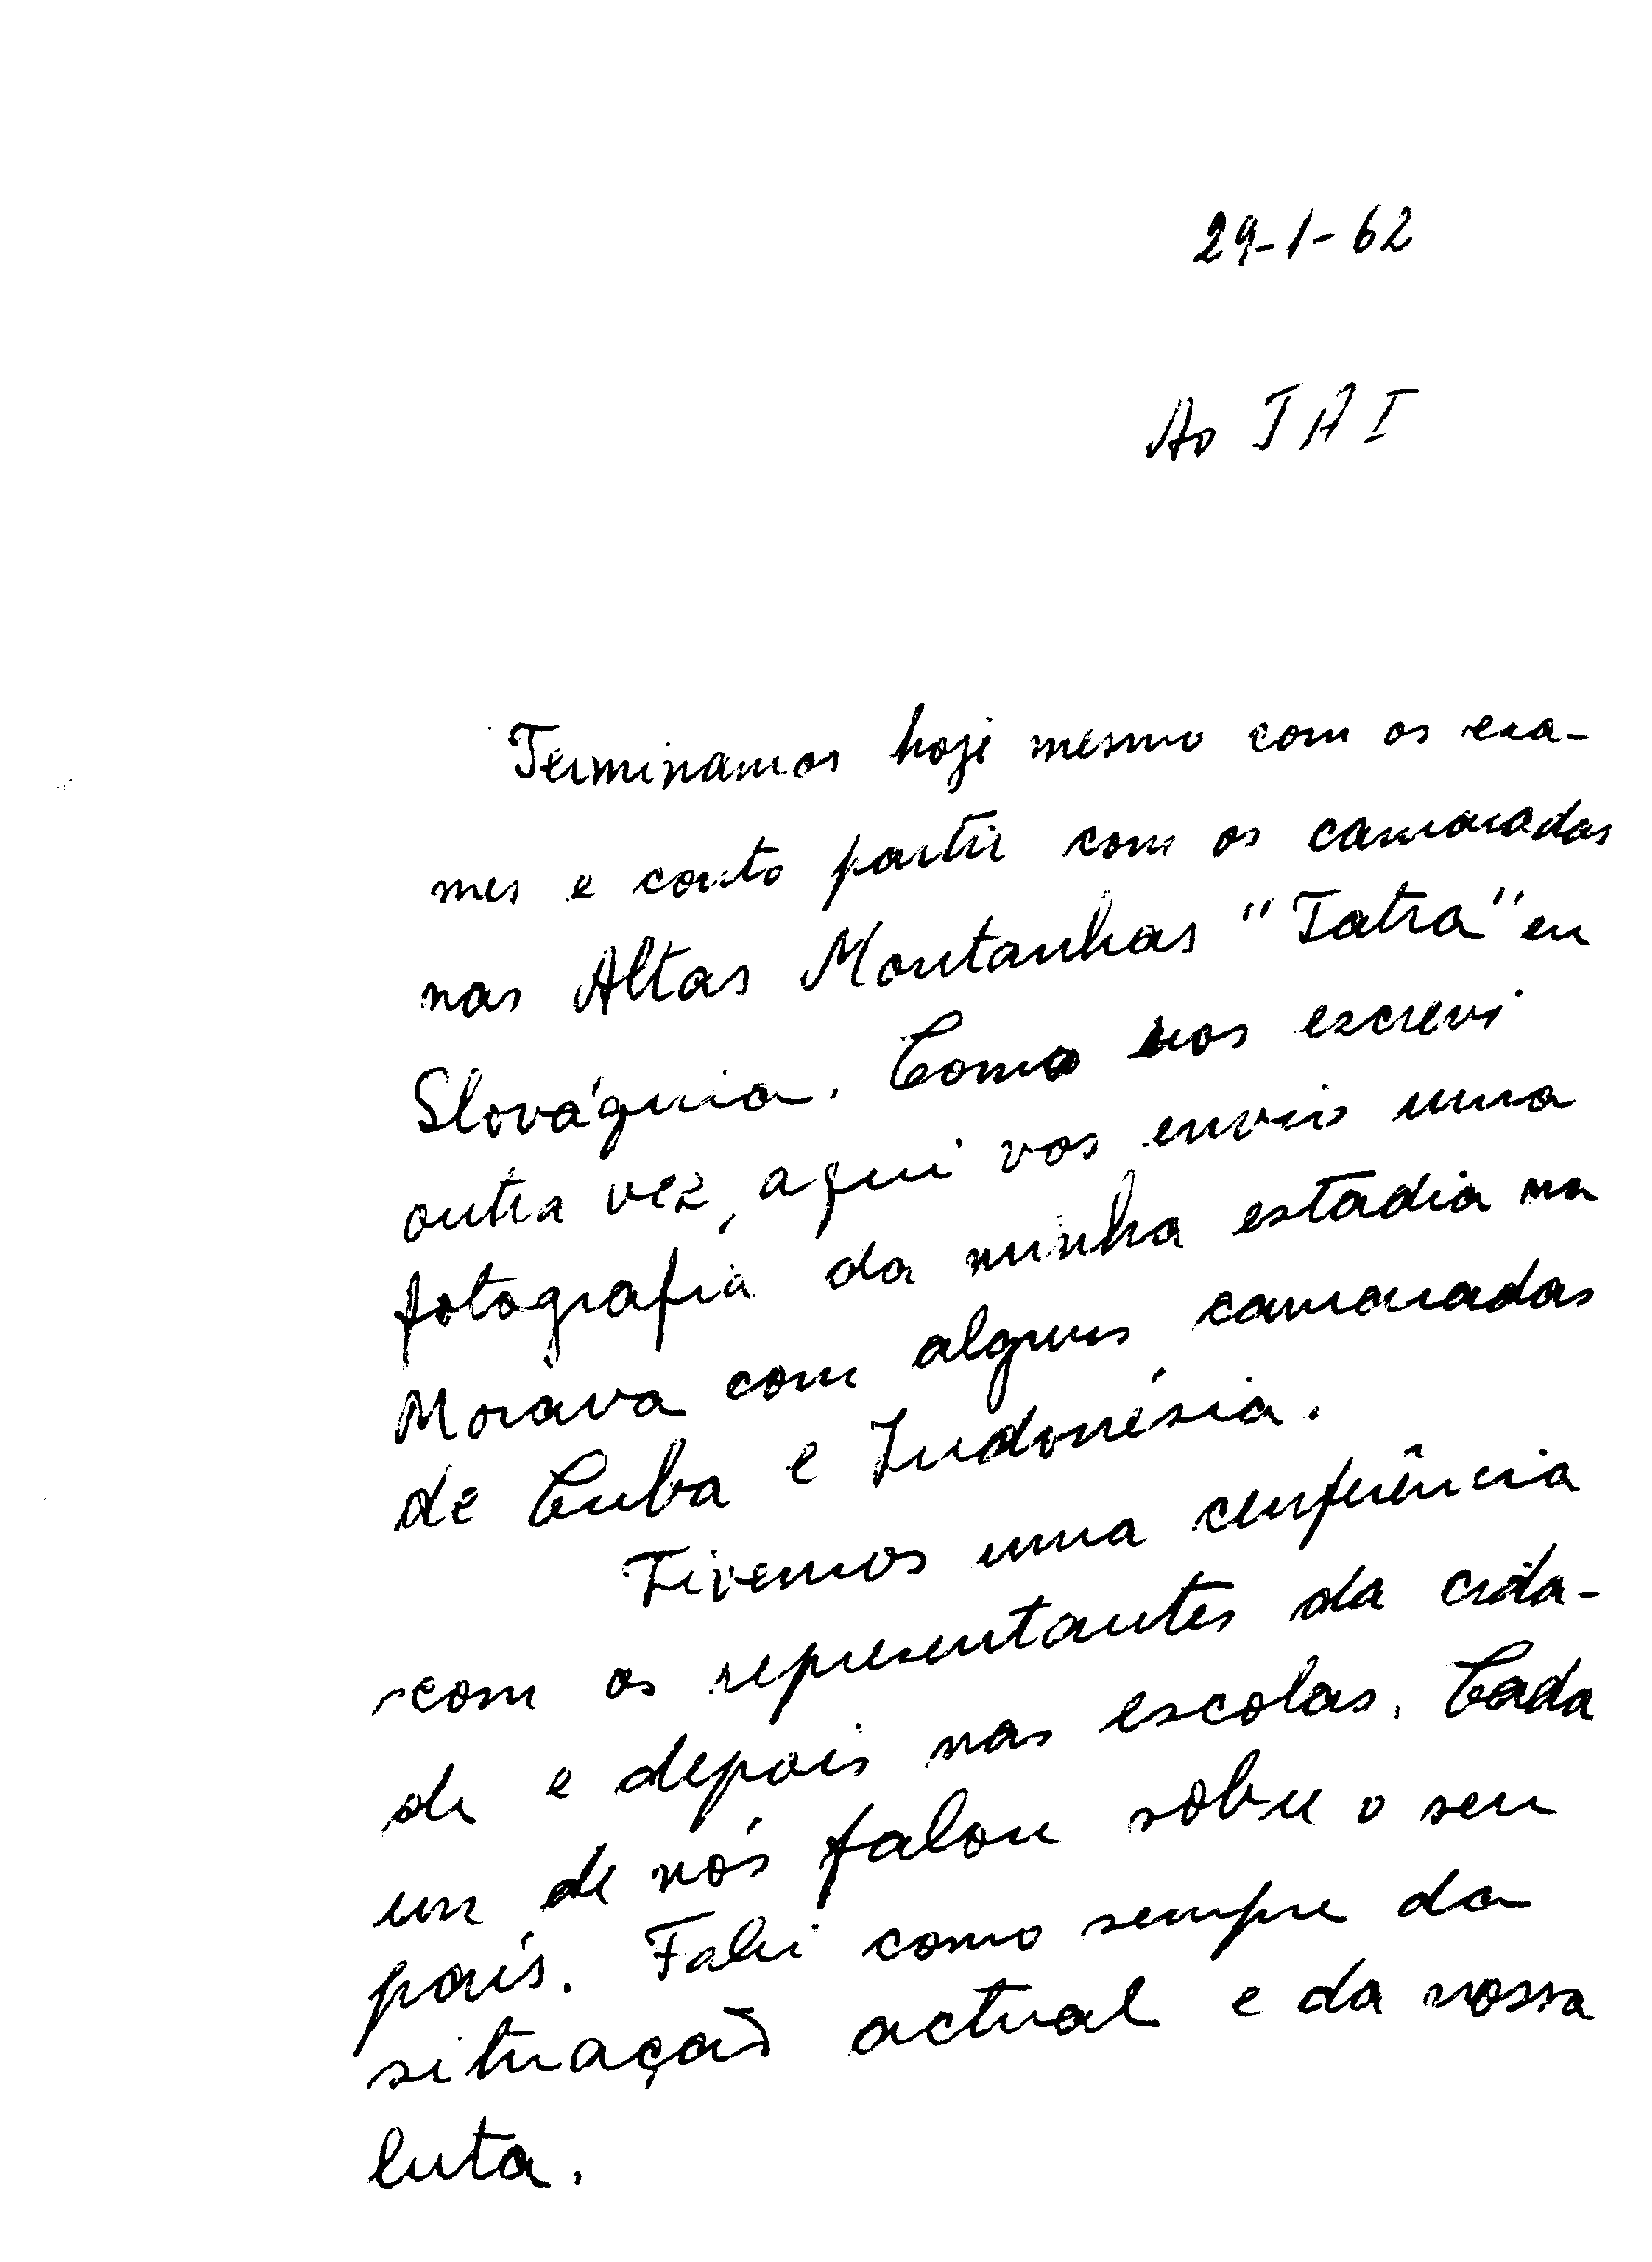 29-1-62
Ao JAI
Terminamos hoje mesmo com os exa-
mes e conto partir com os camaradas
nas Altas Montanhas "Tatra" en
Slováquia. Como vos escrevi
outra vez, aqui vos envio uma
fotografia da minha estadia na
Morava com alguns camaradas
de Cuba e Indonésia.
Tivemos uma conferência
com os representantes da cida-
de e depois nas escolas. Cada
um de nós falou sobre o seu
país. Falei como sempre da
situação actual e da nossa
luta.